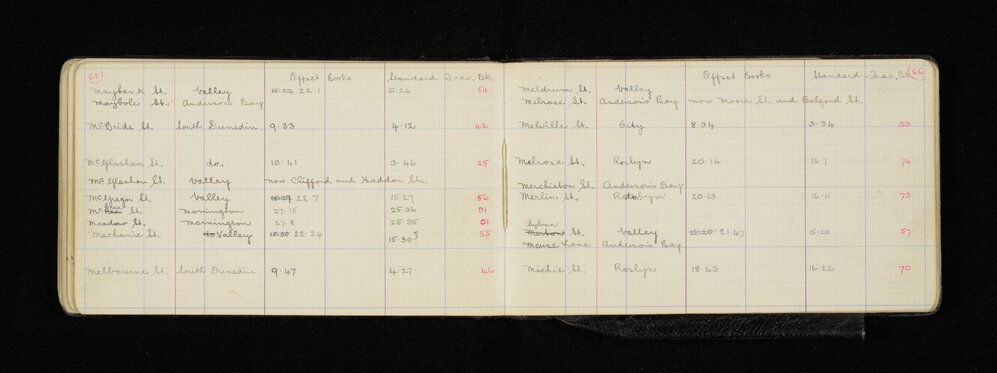 65
Offset Books. Standard Trav. Bk.
Maybank St. Valley 15.24 22.1 15.24 54
Maybole St. Anderson's Bay
McBride St. South Dunedin 9.33 4.12 42
McGlashan St. do.. 10.41 3.46 25
McGlashan St. Valley now Clifford and Haddon Sts.
McGregor St. Valley 15.29 22.7 15.29 56
Mc St. Mornington 27.15 25.36 91
Meadow St. Mornington 27.8 25.35 91
Mechanic St. do Valley 15.30 22.24 15.30 5 55
Melbourne St. South Dunedin 9.47 4.27 46
65
Offset Books Standard Trav. Bk.
Meldrum St. Valley
Melrose St. Anderson's Bay now Moore St. and Belford St.
Melville St. City 8.34 3.34 33
Melrose St., Roslyn 20.14 16.7 74
Merchiston St. Anderson's Bay
Merlin St., Roslyn do. 20.13 16.11 73
Sylvan
Merton St. Valley 15.20 21.47 15.20 57
Meuse Lane Anderson's Bay
Michie St. Roslyn 18.43 16.22 70